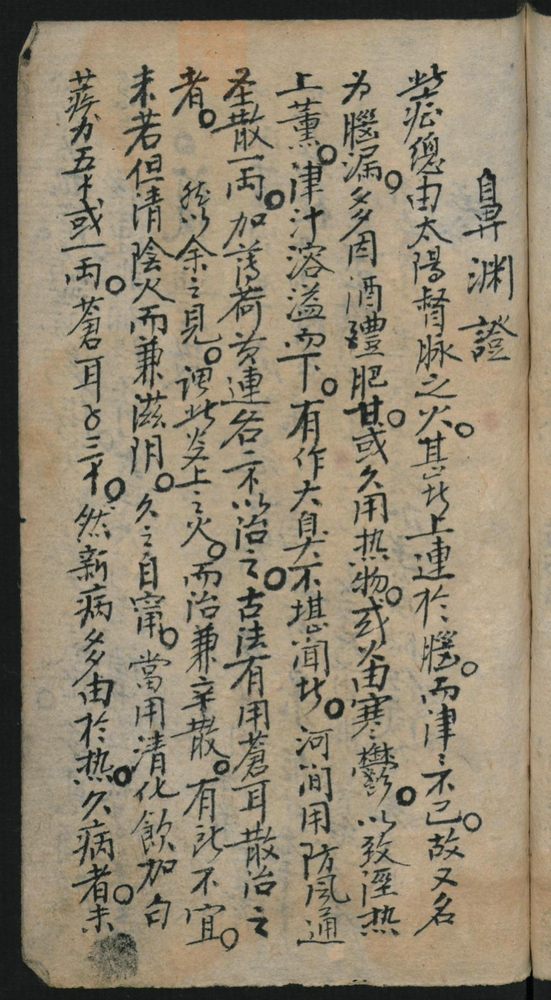 鼻渊證
此症總由太陽督脉之火。其此上連於腦。而津〻不已。故又名
为腦漏。多因酒醴肥甘。或久用热物。或火由寒鬱。以致溼热
上薰。津汁溶溢而下。有作大臭不堪闻此。河间用防风通
圣散一兩。加薄荷黄連各二不以治之。古法有用蒼耳散治之
者。然以余之見。谓此炎上之火。而治兼辛散。有所不宜。
未若但清陰火而兼滋阴。久之自甯。當用清化飲加白
蒺 五 或一兩。蒼耳 三 。然新病多由於热。久病者未